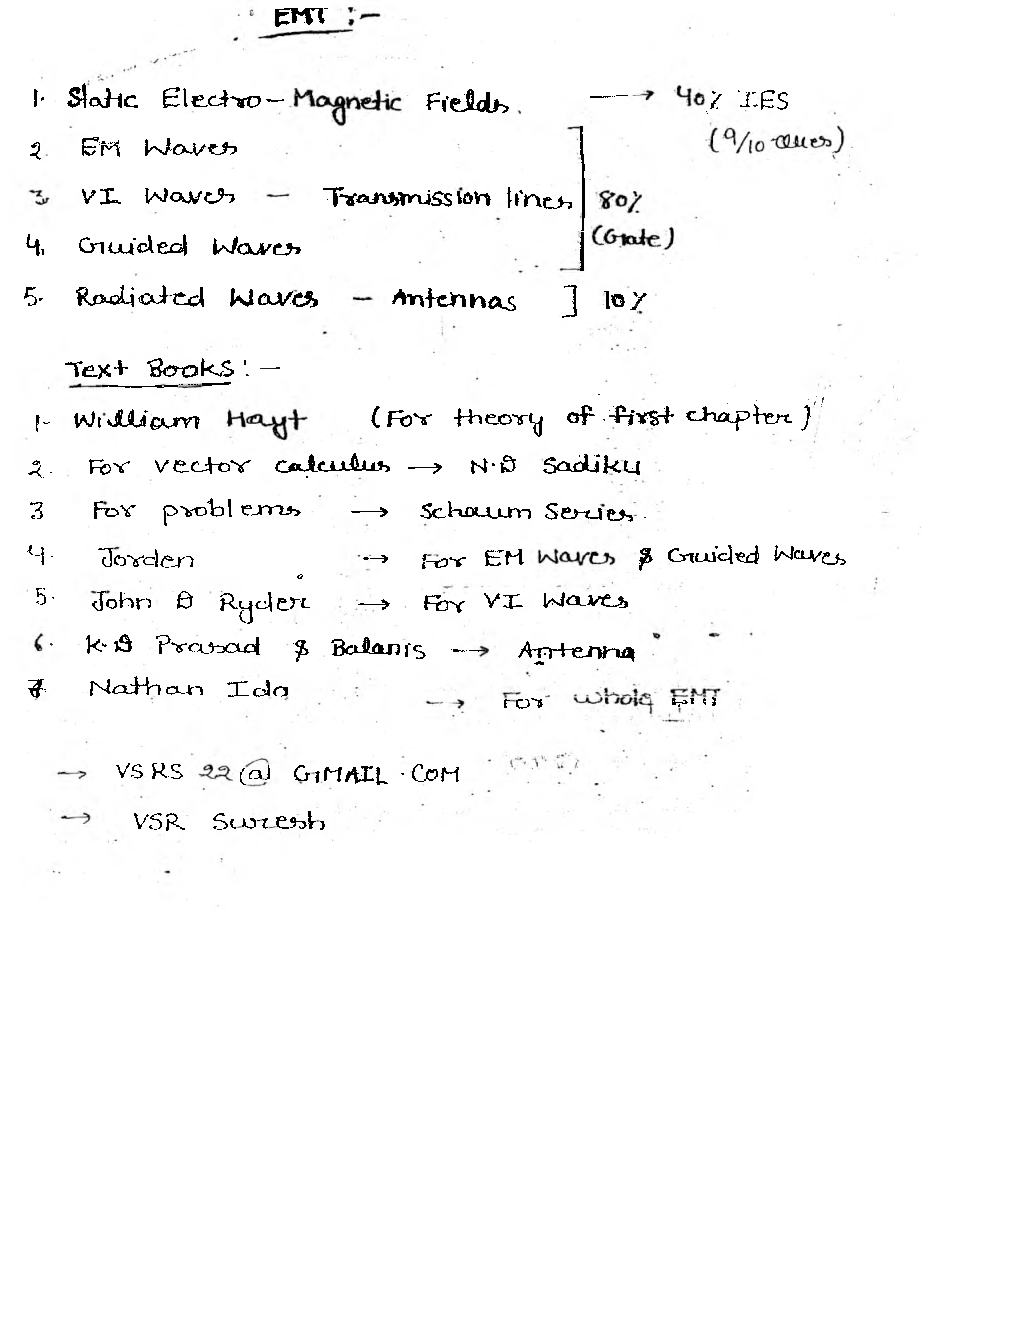 EMT :-
1. Static Electro-Magnetic Fields. → 40% IES
(9/10 ques)
2. EM Waves
3. VI Waves - Transmission lines 80%
4. Guided Waves (Gate)
5. Radiated Waves - Antennas ] 10%
Text Books :-
1. William Hayt (For theory of first chapter)
2. For vector calculus → N.D Sadiku
3 For problems → Schaum Series.
4. Jorden → For EM Waves & Guided Waves
5. John D Ryder → For VI Waves
6. K.D Prasad & Balanis → Antenna
7 Nathan Ida → For whole EMT
→ VSRS 22@GMAIL.COM
→ VSR Suresh